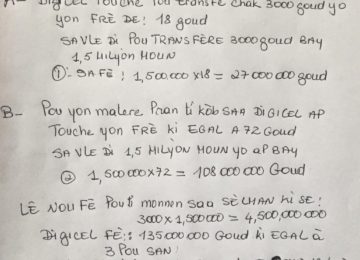 A- Digicel Touche Pou transfè chak 3000 goud yo
yon FRÈ DE: 18 goud
SAVLE Di POU TRANSFÈRE 3000 goud BAY
1,5 MilyON MOUN
①: SA FÈ: 1,500,000x18 = 27 000 000 goud
B- Pou yon malere Pran ti kòb SAA DIGICEL AP
Touche yon FRÈ Ki EGAL A 72 Goud
SA VLE Di 1,5 MILYON MOUN yo ap BAY
② 1,500 000x72 = 108 000 000 Goud
LÈ NOU FÈ Pou ti monnen saa SÈCHAN ki SE:
3000x1,500 000 = 4,500,000 000
DIGICEL FÈ: 135 000 000 Goud Ki EGAL à
3 POU SAN!